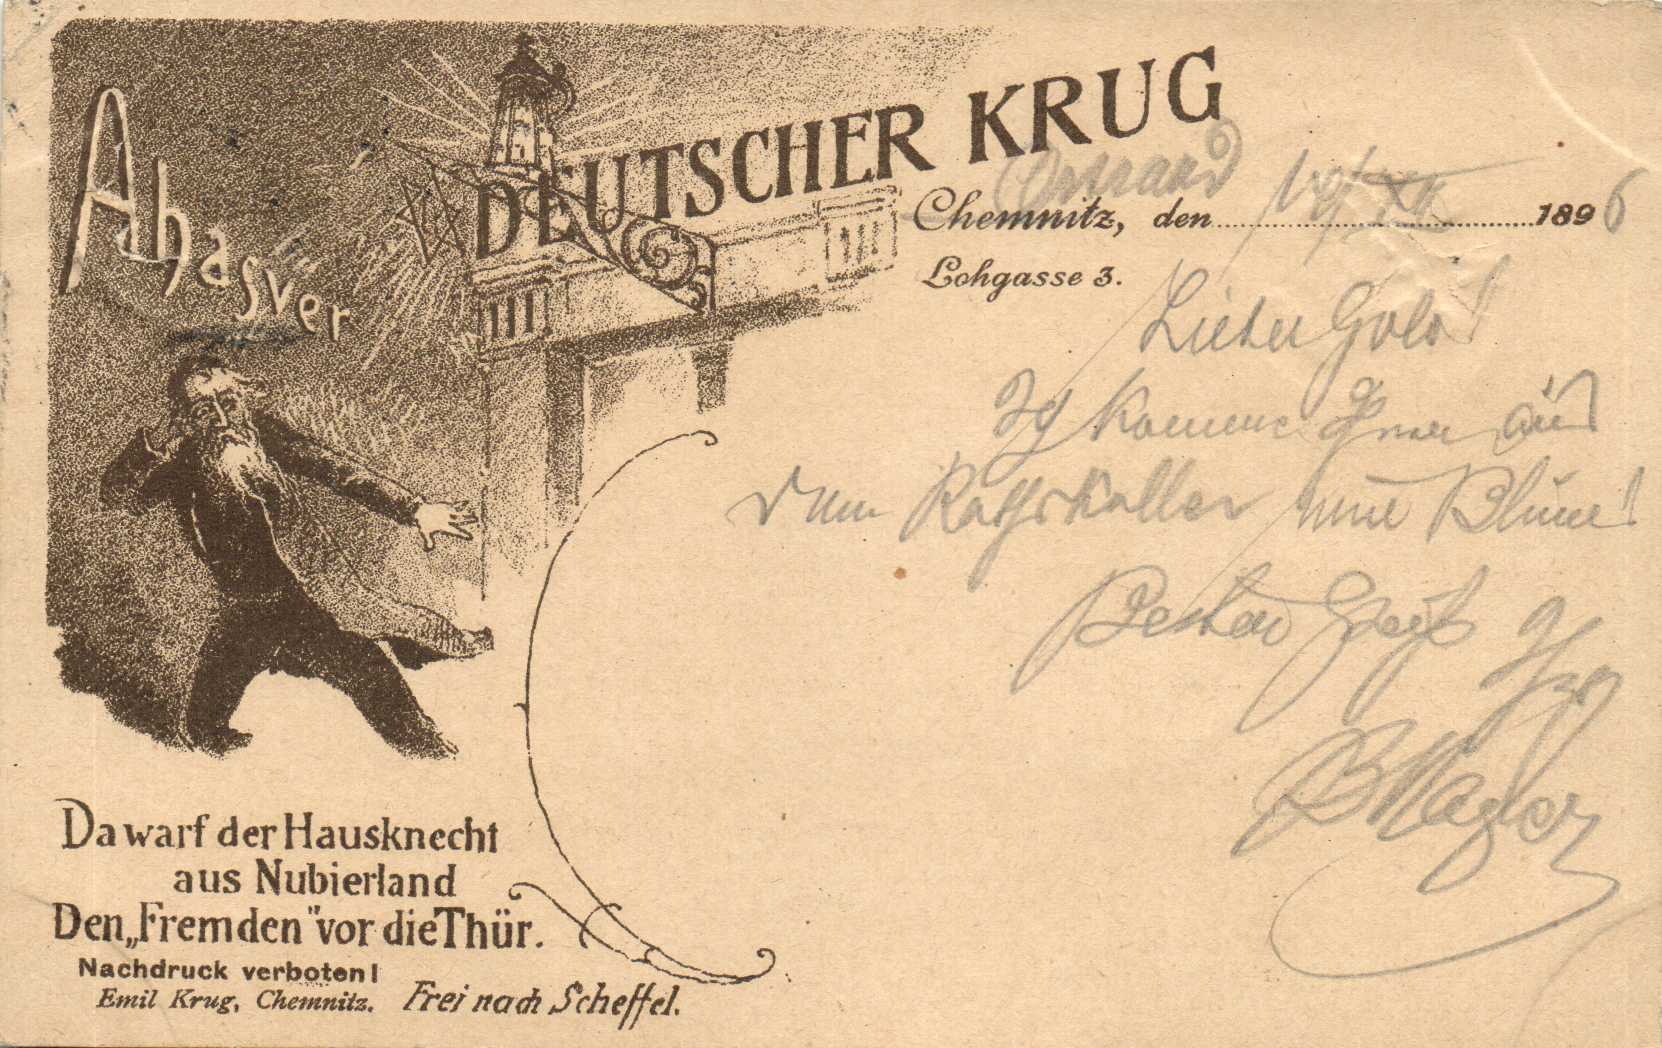 Ahasver
DEUTSCHER KRUG
Chemnitz, den 1896
Lohgasse 3.
Lieber
Ich komme aus
dem Rathskeller Blume!
Besten Gruß Ihr
Da warf der Hausknecht
aus Nubierland
Den „Fremden" vor die Thür.
Nachdruck verboten!
Emil Krug, Chemnitz. Frei nach Scheffel.